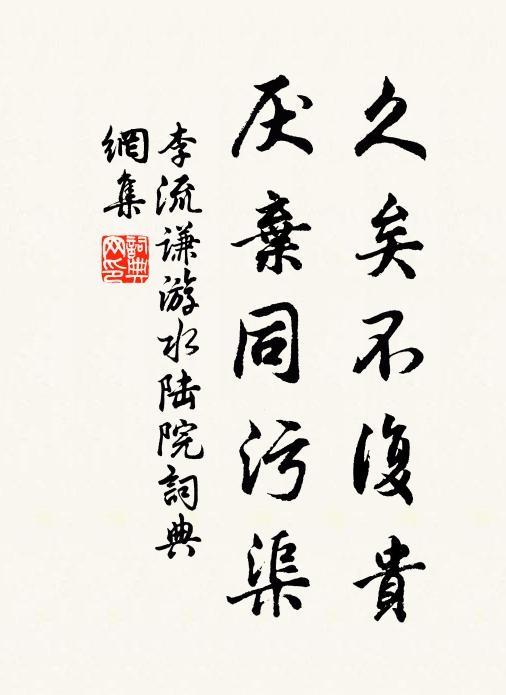 久矣不復貴
厌棄同污渠
李流謙游水陆院詞典
網集
詞典網印